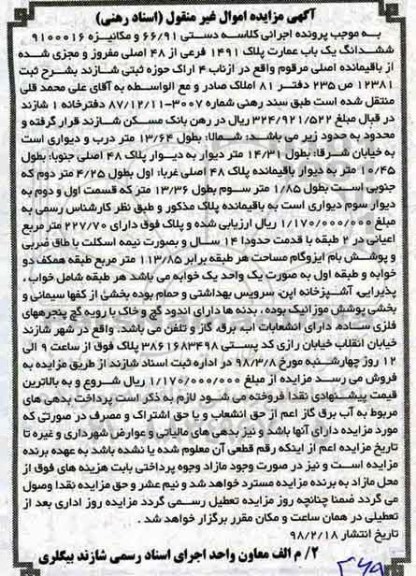 آگهی مزایده اموال غیر منقول (اسناد رهنی)
به موجب پرونده اجرائی کلاسه دستی ۶۶/۹۱ و مکانیزه ۹۱۰۰۰۱۶
ششدانگ یک باب عمارت پلاک ۱۴۹۱ فرعی از ۴۸ اصلی مفروز و مجزی شده
از باقیمانده اصلی مرقوم واقع در ازناب ۴ اراک حوزه ثبتی شازند بشرح ثبت
۱۲۳۸۱ ص ۲۳۵ دفتر ۸۱ املاک صادر و مع الواسطه به آقای علی محمد قلی
منتقل شده است طبق سند رهنی شماره ۳۰۰۷-۸۷/۱۲/۱۱ دفترخانه ۱ شازند
در قبال مبلغ ۳۲۴/۹۲۱/۵۲۲ ریال در رهن بانک مسکن شازند قرار گرفته و
محدود به حدود زیر می باشد: شمالا: بطول ۱۳/۶۴ متر درب و دیواری است
به خیابان شرقا: بطول ۱۴/۳۱ متر دیوار به دیوار پلاک ۴۸ اصلی جنوبا: بطول
۱۰/۴۵ متر به دیوار باقیمانده پلاک ۴۸ اصلی غربا: اول بطول ۴/۲۵ متر دوم که
جنوبی است بطول ۱/۸۵ متر سوم بطول ۱۳/۳۶ متر که قسمت اول و دوم به
دیوار سوم دیواری است به باقیمانده پلاک مذکور و طبق نظر کارشناس رسمی به
مبلغ ۱/۱۷۰/۰۰۰/۰۰۰ ریال ارزیابی شده و پلاک فوق دارای ۲۲۷/۷۰ متر مربع
اعیانی در ۲ طبقه با قدمت حدودا ۱۴ سال و بصورت نیمه اسکلت با طاق ضربی
و پوشش بام ایزوگام مساحت هر طبقه برابر ۱۱۳/۸۵ متر مربع طبقه همکف دو
خوابه و طبقه اول به صورت یک واحد یک خوابه می باشد هر طبقه شامل خواب ،
پذیرایی، آشپزخانه اپن، سرویس بهداشتی و حمام بوده بخشی از کفها سیمانی و
بخشی پوشش موزائیک بوده ، بدنه ها دارای اندود گچ و خاک با رویه گچ پنجرههای
فلزی ساده، دارای انشعابات آب، برق، گاز و تلفن می باشد، واقع در شهر شازند
خیابان انقلاب خیابان رازی کد پستی ۳۸۶۱۶۸۳۴۹۸ پلاک فوق از ساعت ۹ الی
۱۲ روز چهارشنبه مورخ ۹۸/۳/۸ در اداره ثبت اسناد شازند از طریق مزایده به
فروش می رسد مزایده از مبلغ ۱/۱۷۰/۰۰۰/۰۰۰ ریال شروع و به بالاترین
قیمت پیشنهادی نقدا فروخته می شود لازم به ذکر است پرداخت بدهی های
مربوط به آب برق گاز اعم از حق انشعاب و یا حق اشتراک و مصرف در صورتی که
مورد مزایده دارای آنها باشد و نیز بدهی های مالیاتی و عوارض شهرداری و غیره تا
تاریخ مزایده اعم از اینکه رقم قطعی آن معلوم شده یا نشده باشد به عهده برنده
مزایده است و نیز در صورت وجود مازاد وجوه پرداختی بابت هزینه های فوق از
محل مازاد به برنده مزایده مسترد خواهد شد و نیم عشر و حق مزایده نقدا وصول
می گردد ضمنا چنانچه روز مزایده تعطیل رسمی گردد مزایده روز اداری بعد از
تعطیلی در همان ساعت و مکان مقرر برگزار خواهد شد .
تاریخ انتشار ۹۸/۲/۱۸
۲/ م الف معاون واحد اجرای اسناد رسمی شازند بیگلری